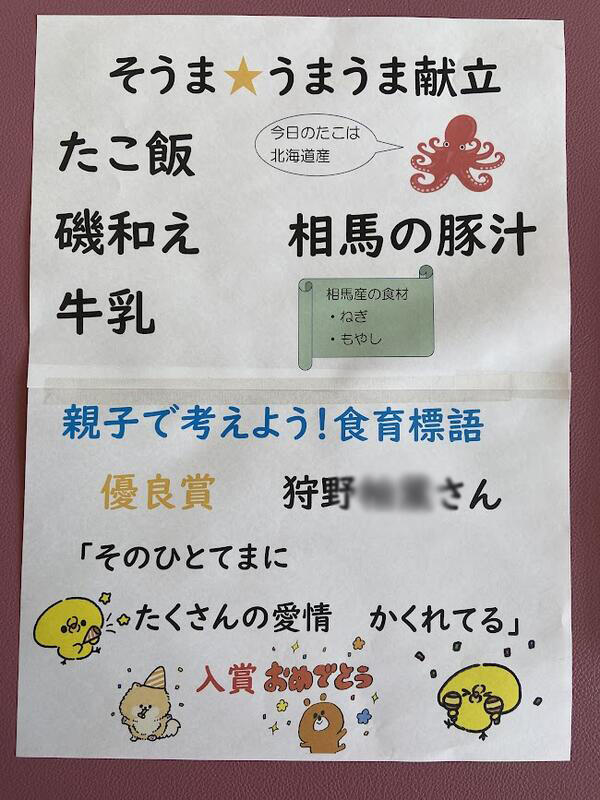 そうま★うまうま献立
たこ飯
今日のたこは
北海道産
磯和え
相馬の豚汁
牛乳
相馬産の食材
・ねぎ
・もやし
親子で考えよう!食育標語
優良賞 狩野 さん
「そのひとてまに
たくさんの愛情 かくれてる」
入賞 おめでとう